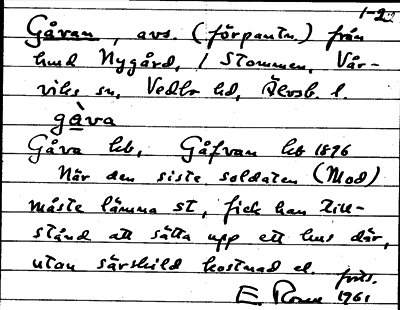 1-2
Gåvan, avs. (förpantn.) från
hmd Nygård, 1 Stommen, Vår-
viks sn, Vedbo hd, Älvsb. l.
gàva
Gåva hb, Gåfvan kb 1896
När den siste soldaten (Mod)
måste lämna st, fick han till-
stånd att sätta upp ett hus där,
utan särskild kostnad el.
forts.
E. 1961